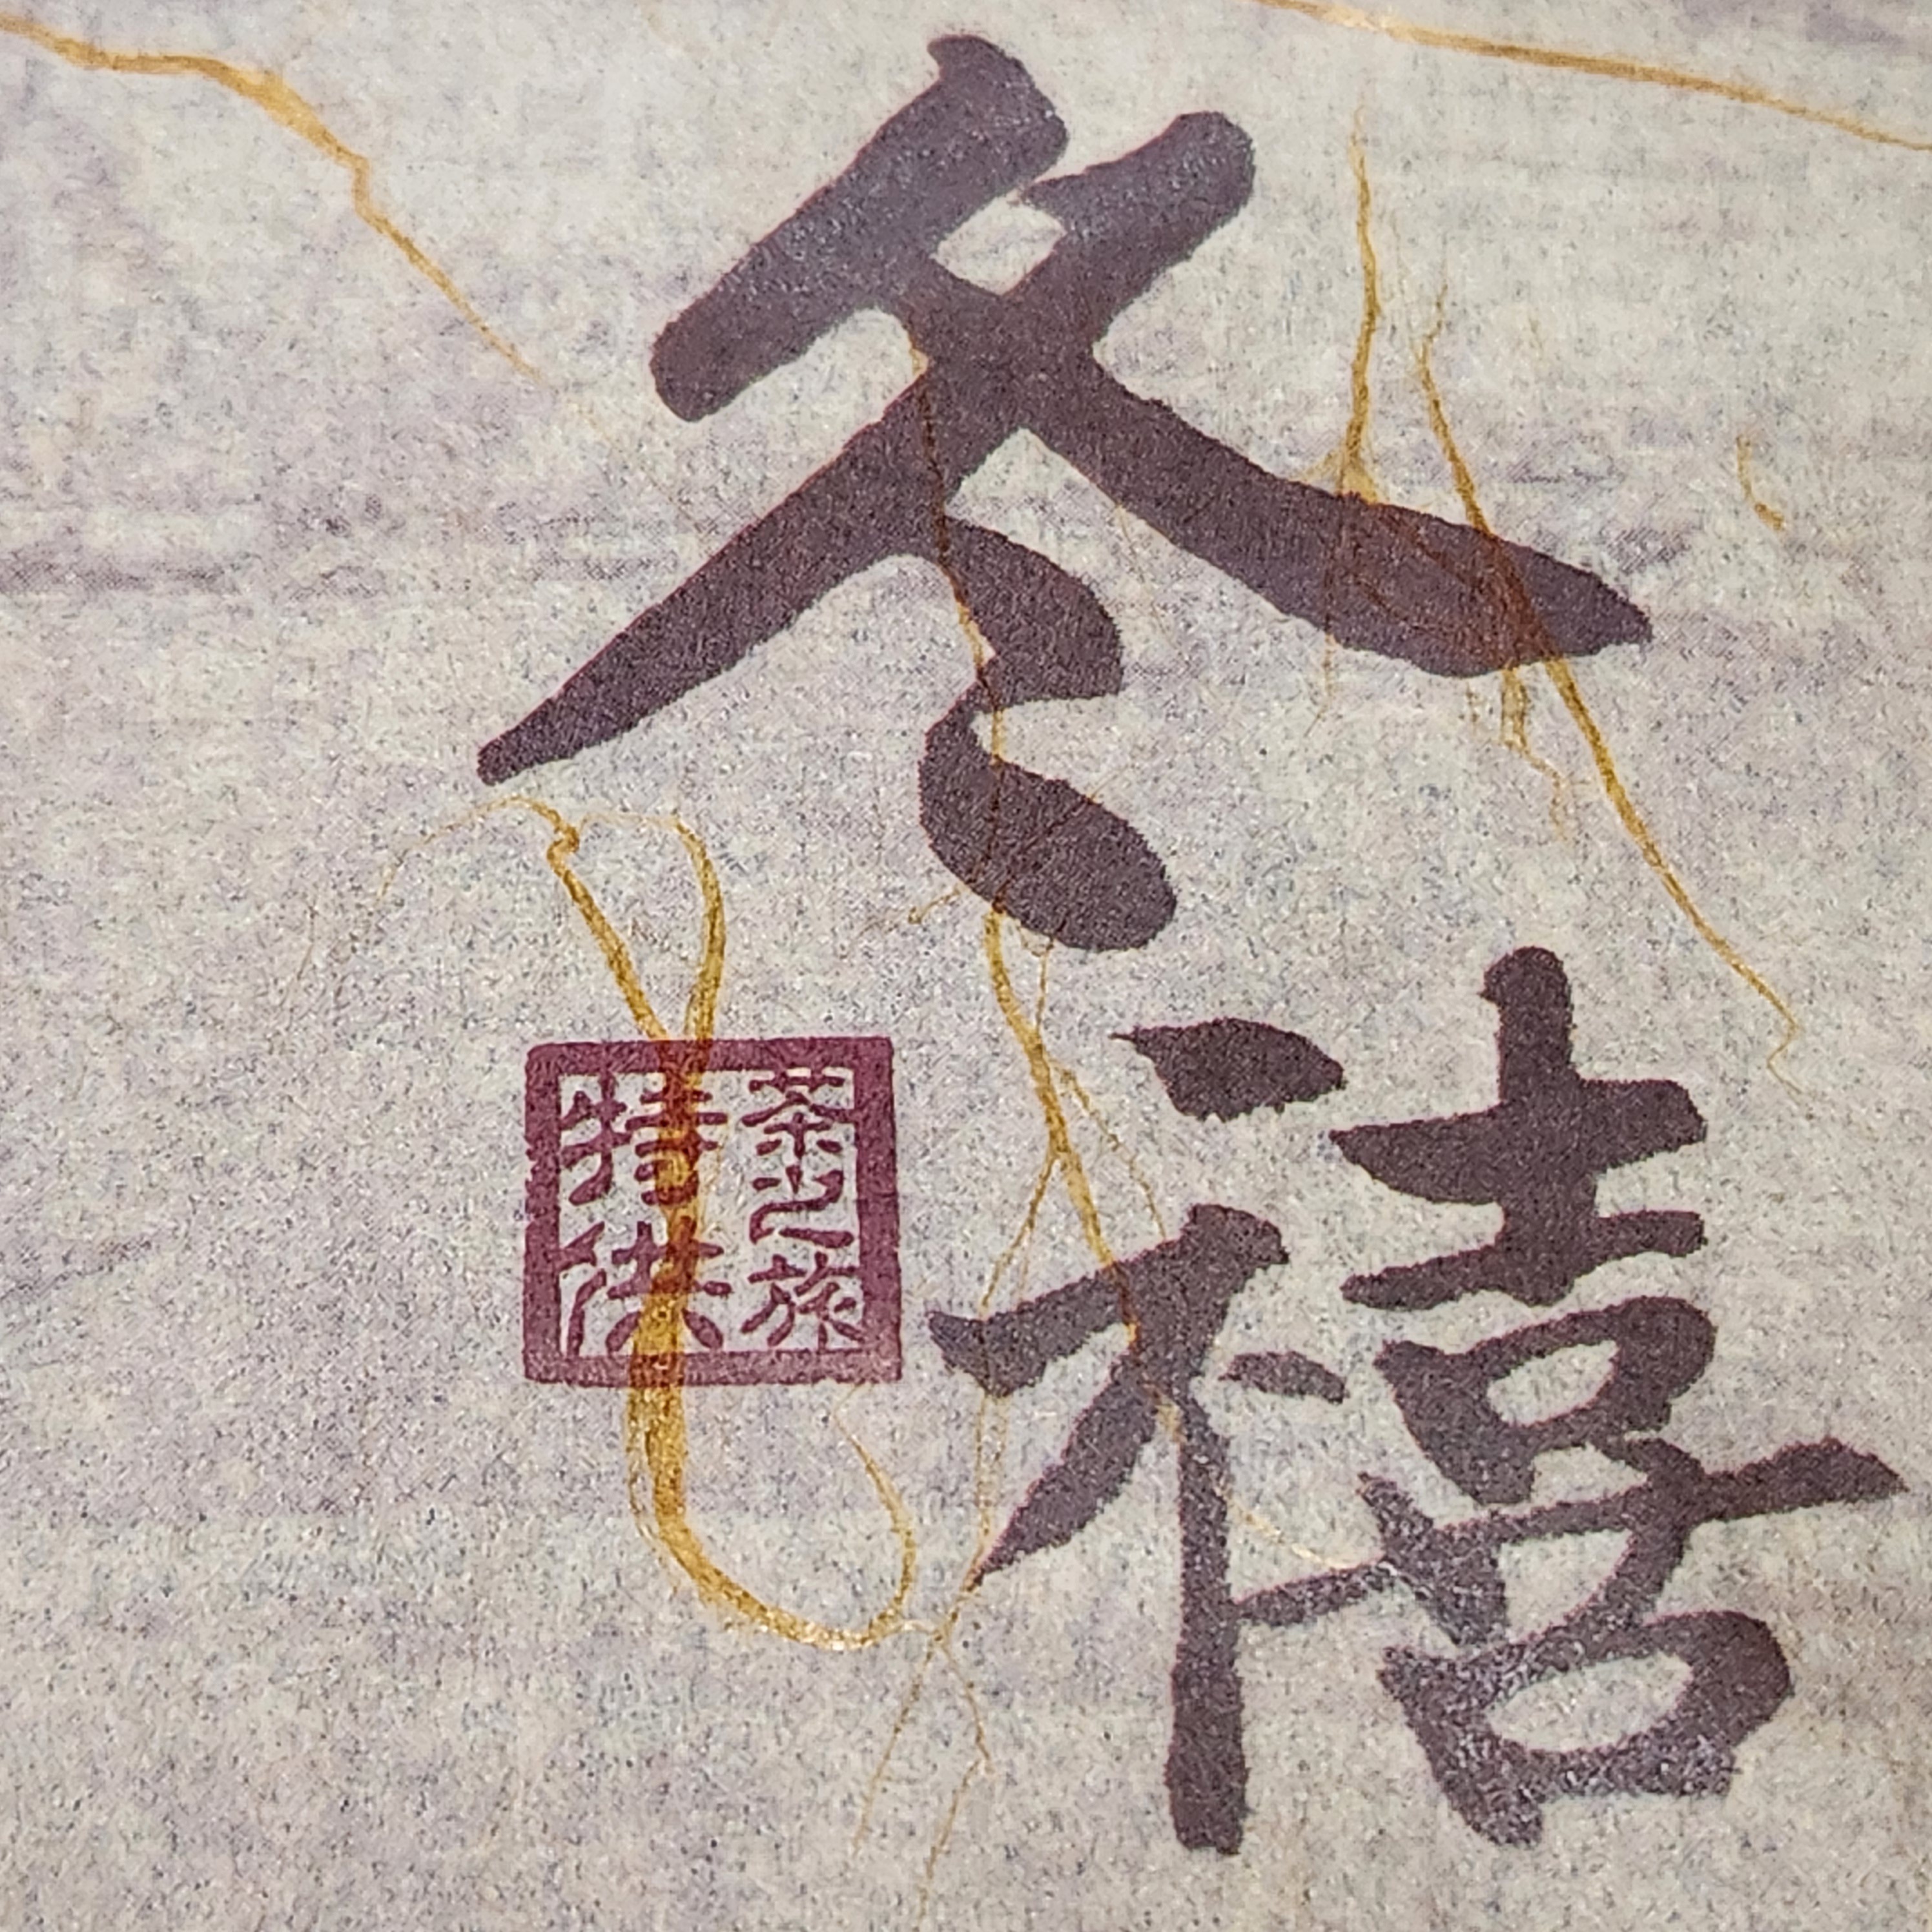 冬
禧
茶之旅
特供